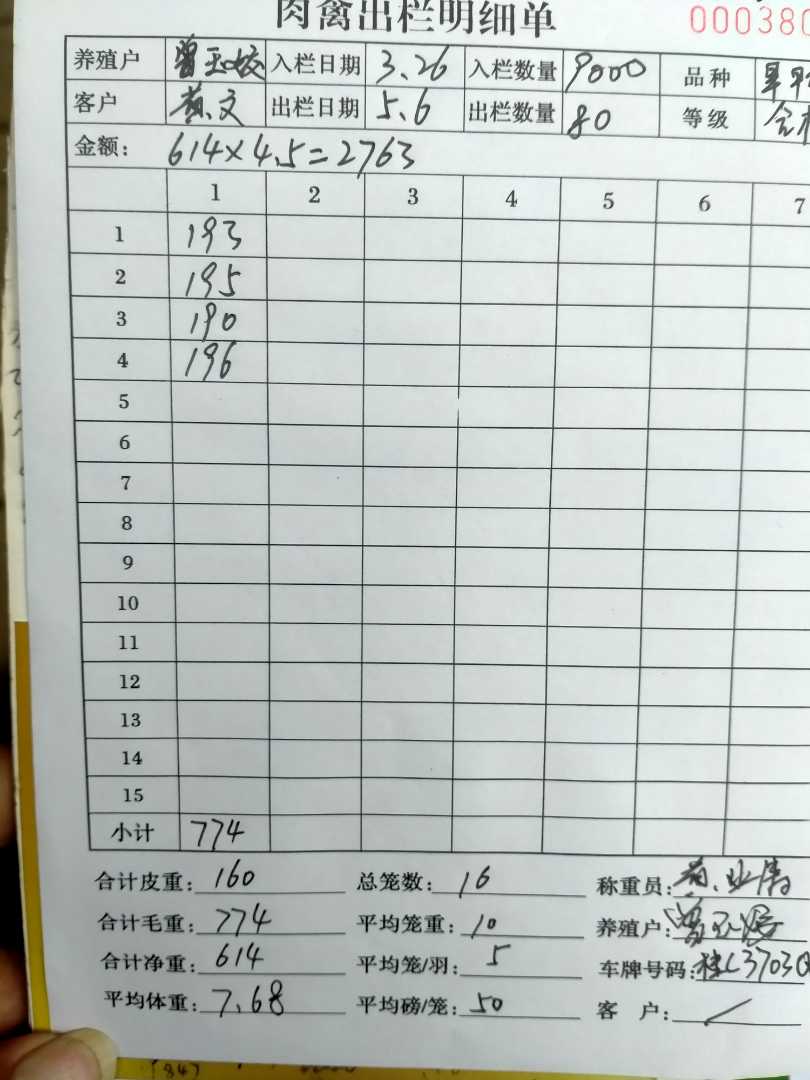 肉禽出栏明细单
000380
养殖户 曾玉姣 入栏日期 3.26 入栏数量 9000 品种
客户 黄文 出栏日期 5.6 出栏数量 80 等级
金额: 614×4.5=2763
1 2 3 4 5 6 7
1 193
2 195
3 190
4 196
5
6
7
8
9
10
11
12
13
14
15
小计 774
合计皮重: 160 总笼数: 16 称重员:
合计毛重: 774 平均笼重: 10 养殖户:
合计净重: 614 平均笼/羽: 5 车牌号码: 桂L3703
平均体重: 7.68 平均磅/笼: 50 客 户: /
(84)